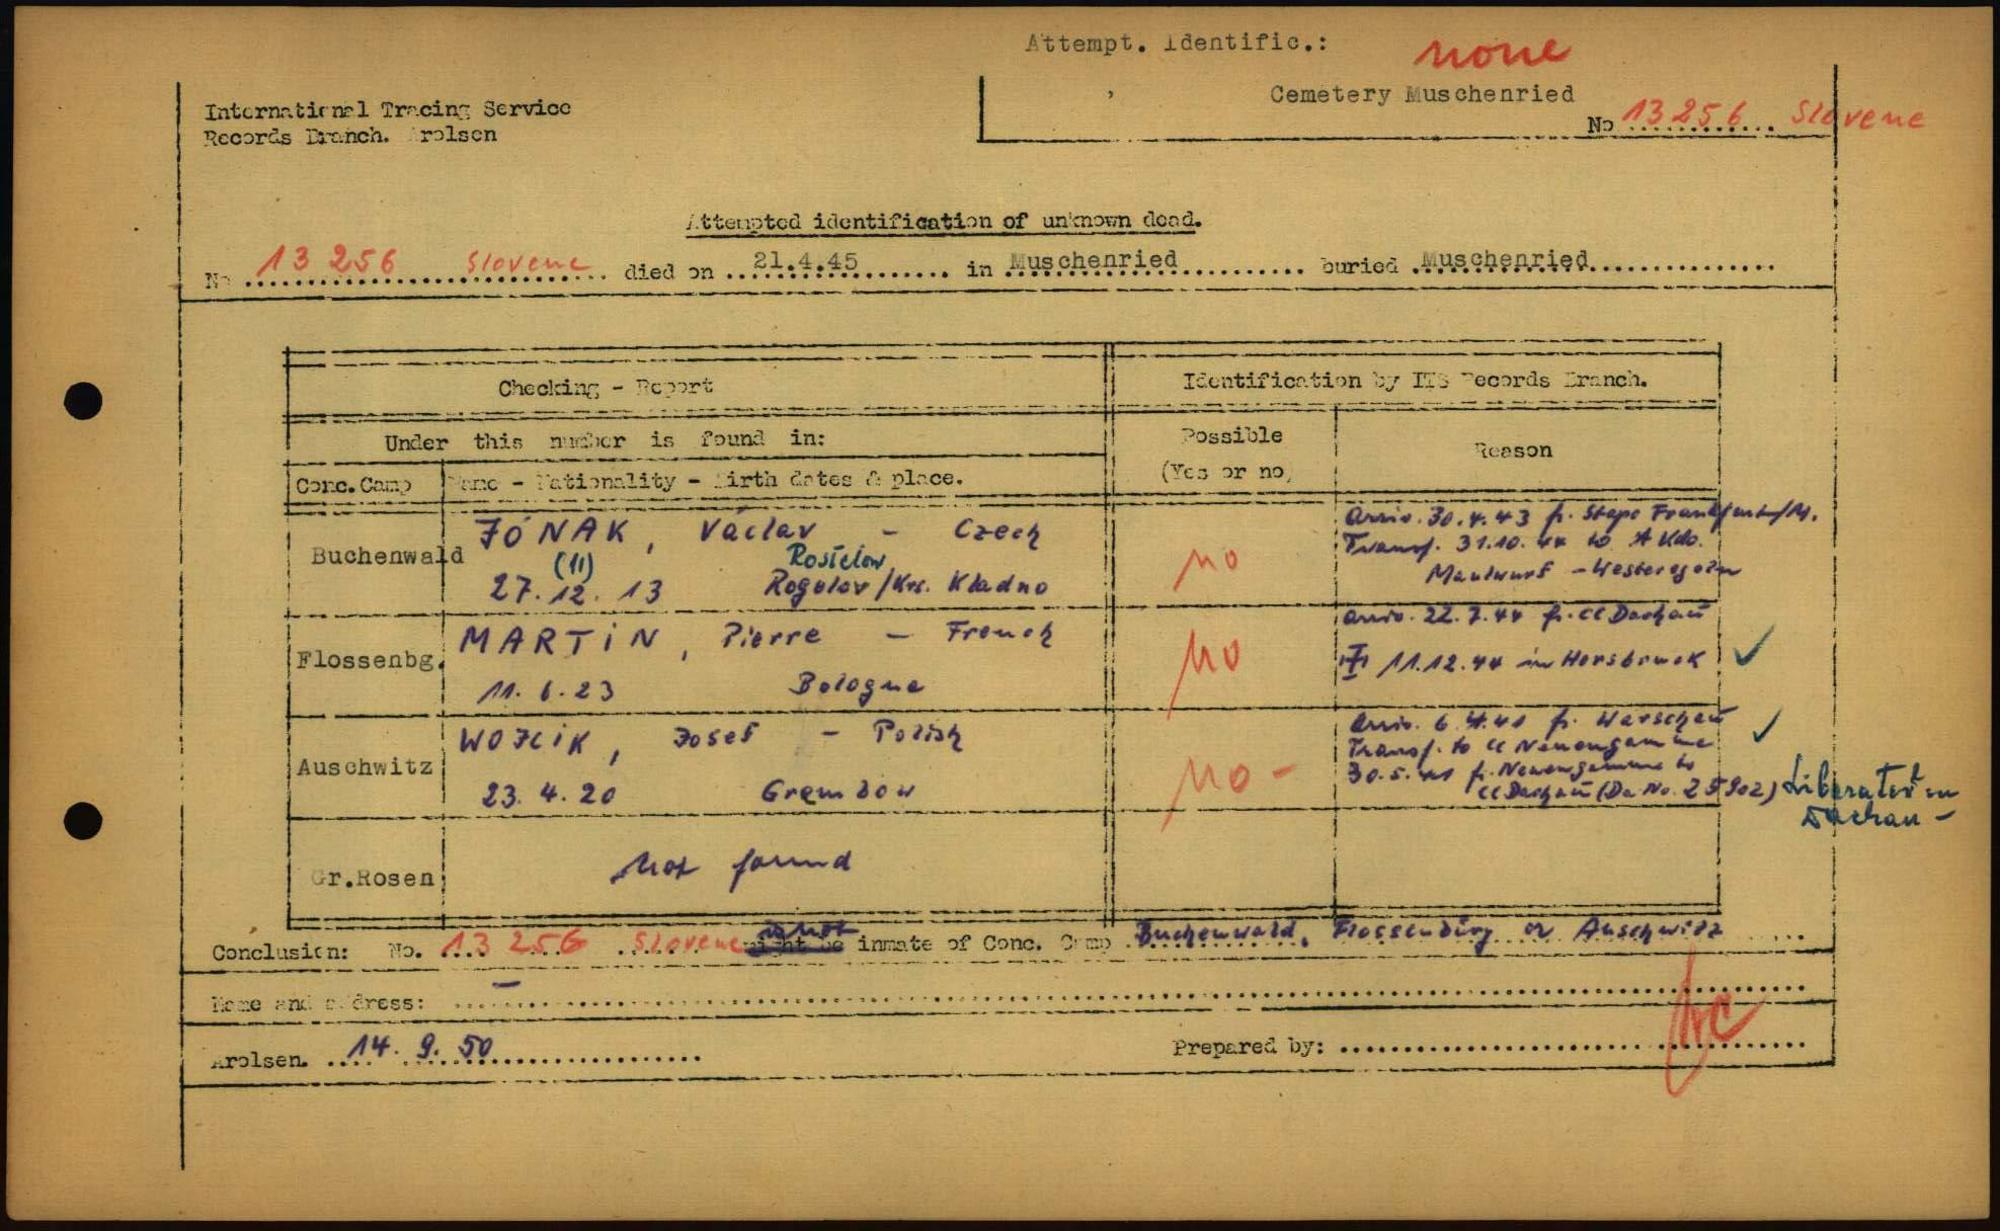 Attempt. Identific.: none
Cemetery Muschenried
International Tracing Service
Records Branch. Arolsen
No 13256 Slovene
Attempted identification of unknown dead.
No 13 256 Slovene died on 21.4.45 in Muschenried buried Muschenried
Checking - Report
Identification by ITS Records Branch.
Under this number is found in:
Possible
(Yes or no)
Reason
Conc.Camp
Name - Nationality - Birth dates & place.
Buchenwald
JÓNAK, Václav - Czech
(11)
27.12.13 Rogolov/Krs. Kladno
no
Arriv. 30.4.43 fr. Stapo Frankfurt/M.
Transf. 31.10.44 to A Kdo.
Maulwurf - Westeregeln
Flossenbg.
MARTIN, Pierre - French
11.6.23 Bologne
no
Arriv. 22.7.44 fr. CC Dachau
11.12.44 in Hersbruck ✓
Auschwitz
WOJCIK, Josef - Polish
23.4.20 Grembow
no -
Arriv. 6.4.41 fr. Warschau ✓
Transf. to CC Neuengamme
30.5.41 fr. Neuengamme to
CC Dachau (Da No. 25902) Liberated in
Dachau -
Gr.Rosen
Not found
Conclusion: No. 13 256 Slovene is not might be inmate of Conc. Camp Buchenwald, Flossenbürg or Auschwitz
Name and address: -
Arolsen. 14. 9. 50
Prepared by: